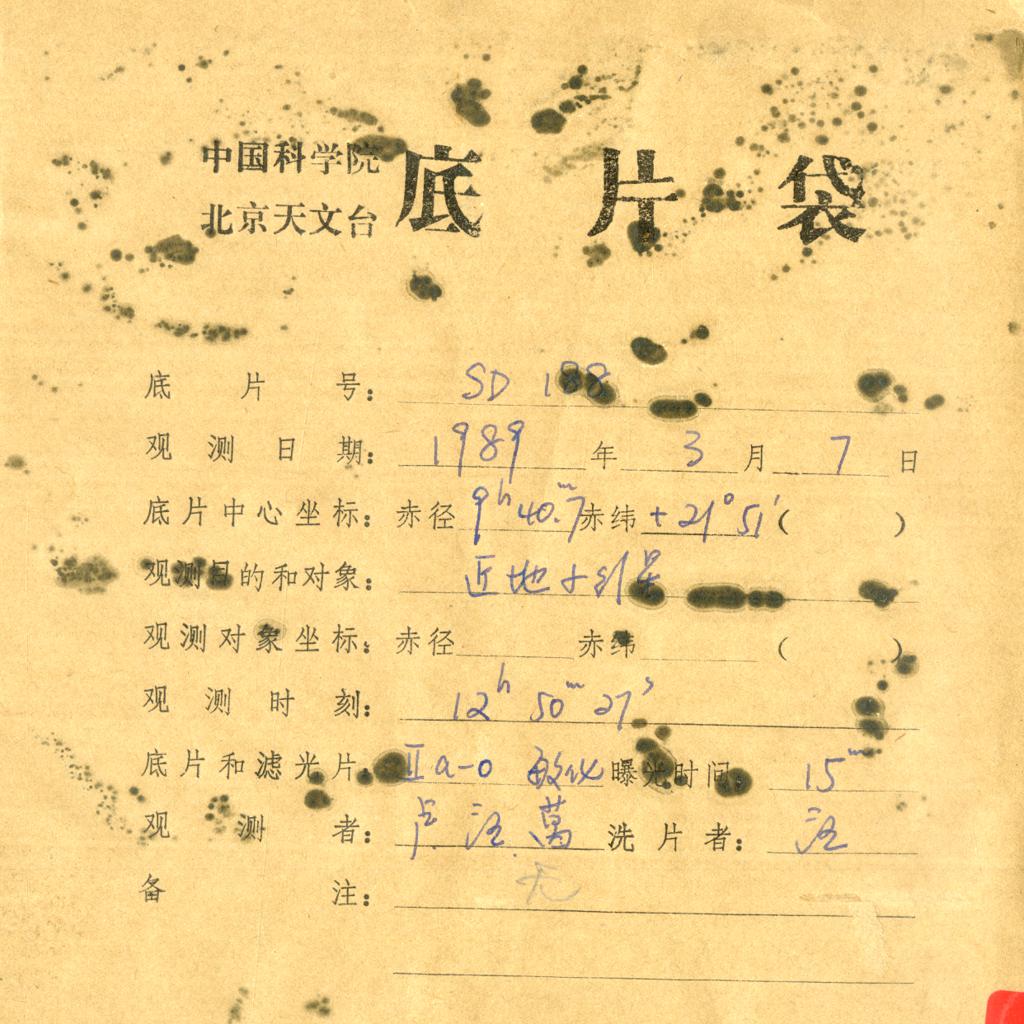 中国科学院
北京天文台
底片袋
底片号： SD 188
观测日期： 1989 年 3 月 7 日
底片中心坐标： 赤径 9h 40.m7 赤纬 +21° 51′ ( )
观测目的和对象： 近地小行星
观测对象坐标： 赤径 赤纬 ( )
观测时刻： 12h 50m 27s
底片和滤光片： IIa-O 敏化 曝光时间： 15m
观测者： 卢. 汪. 萬 洗片者： 汪
备注： 无